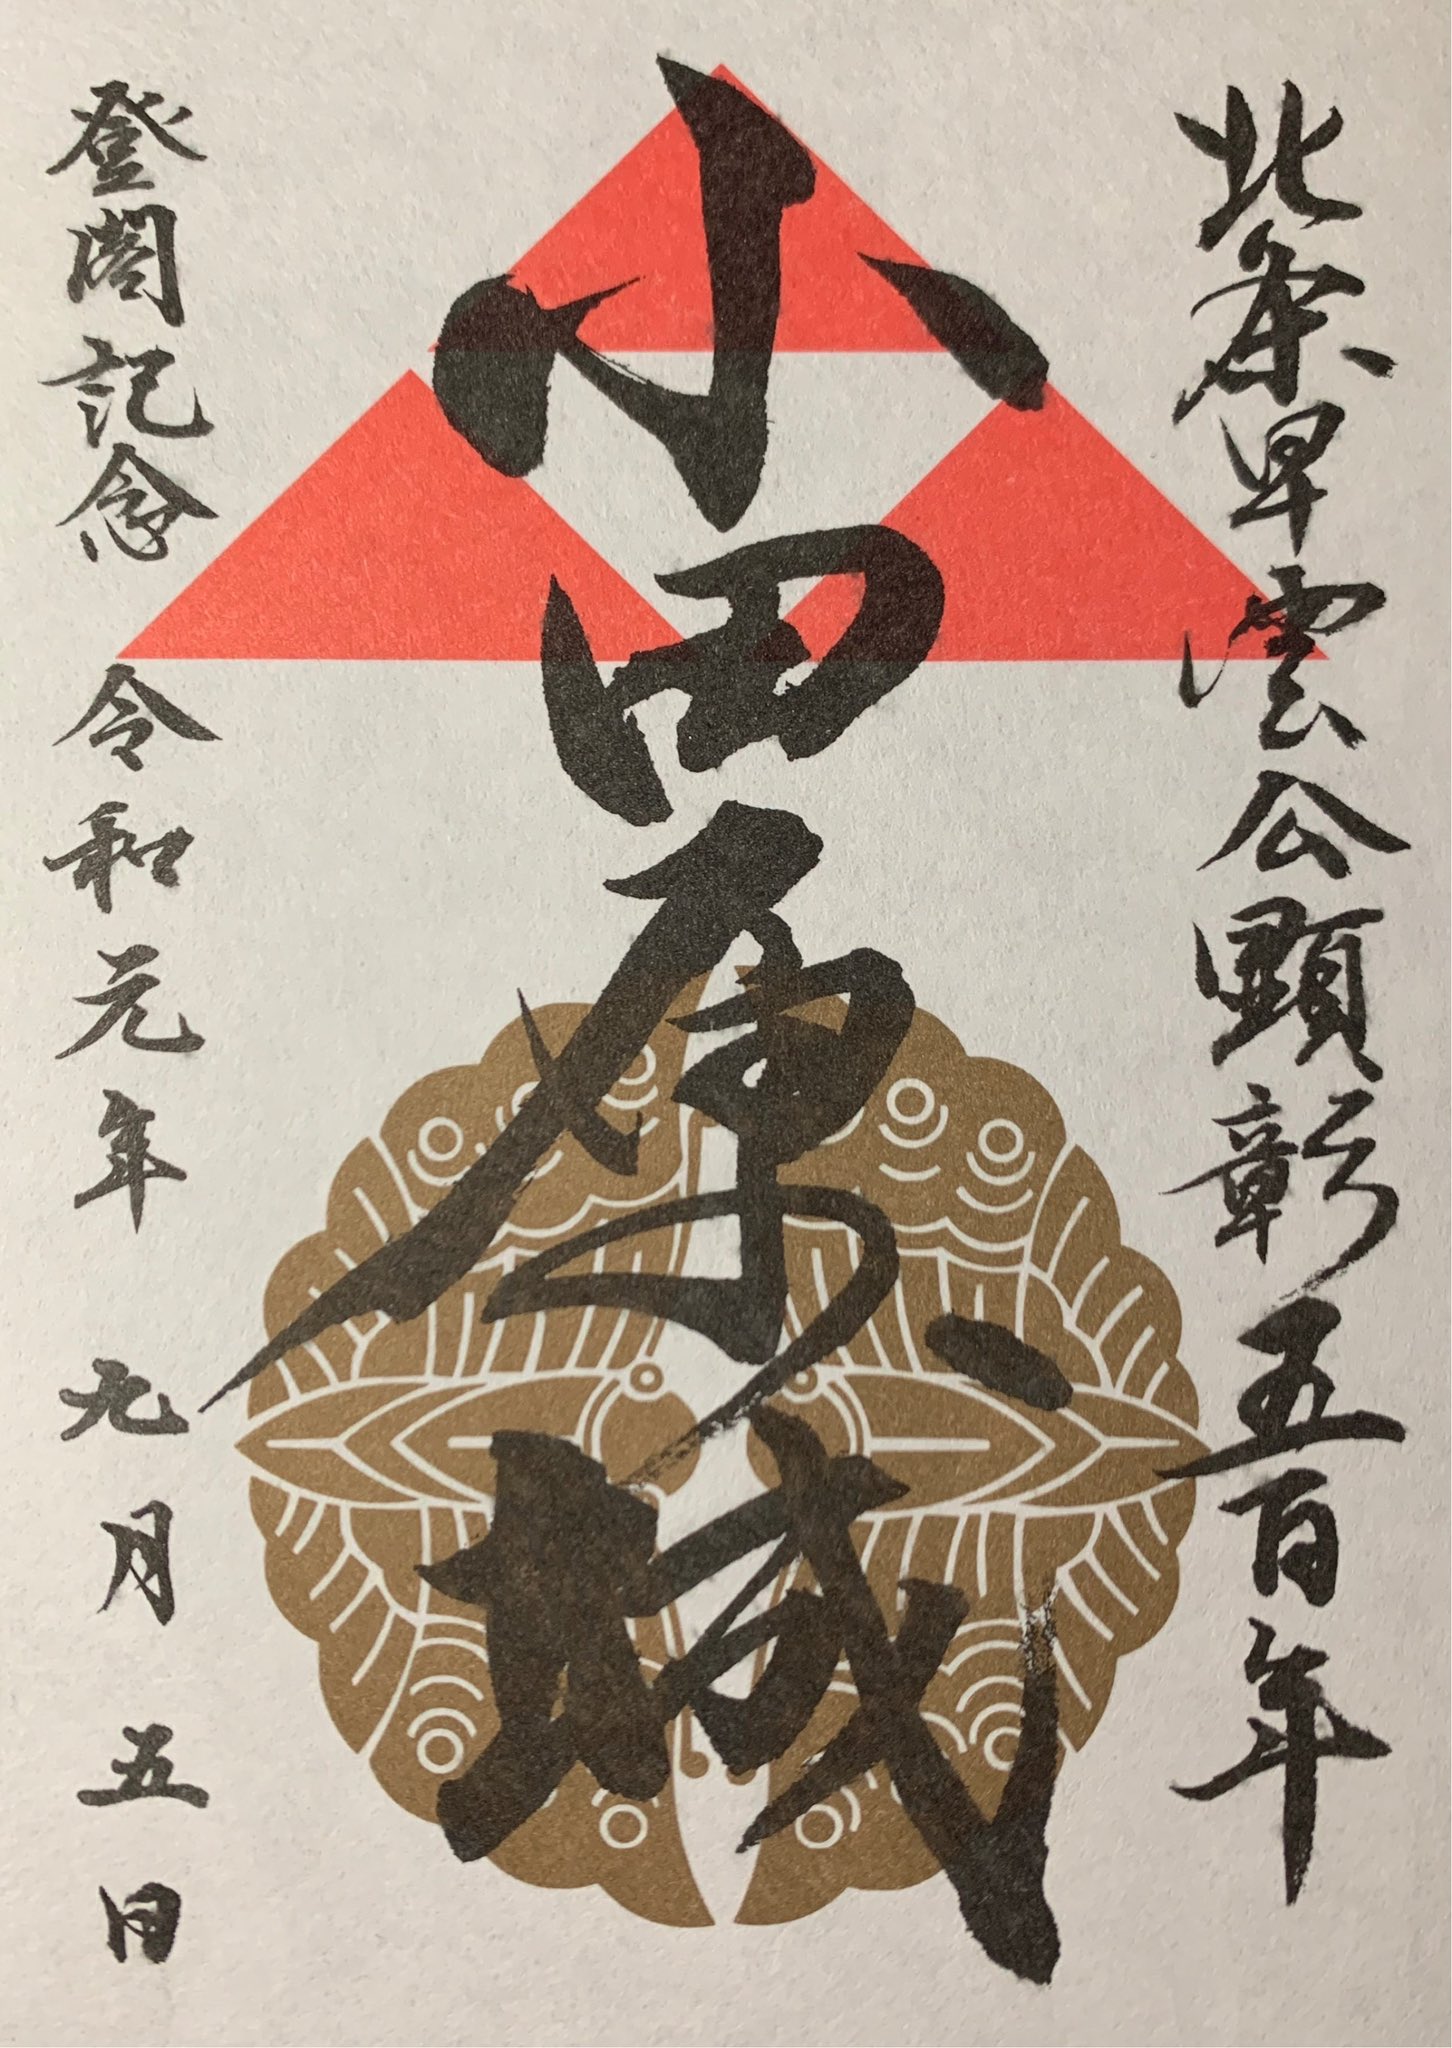 北条早雲公顕彰五百年
小田原城
登閣記念 令和元年 九月 五日